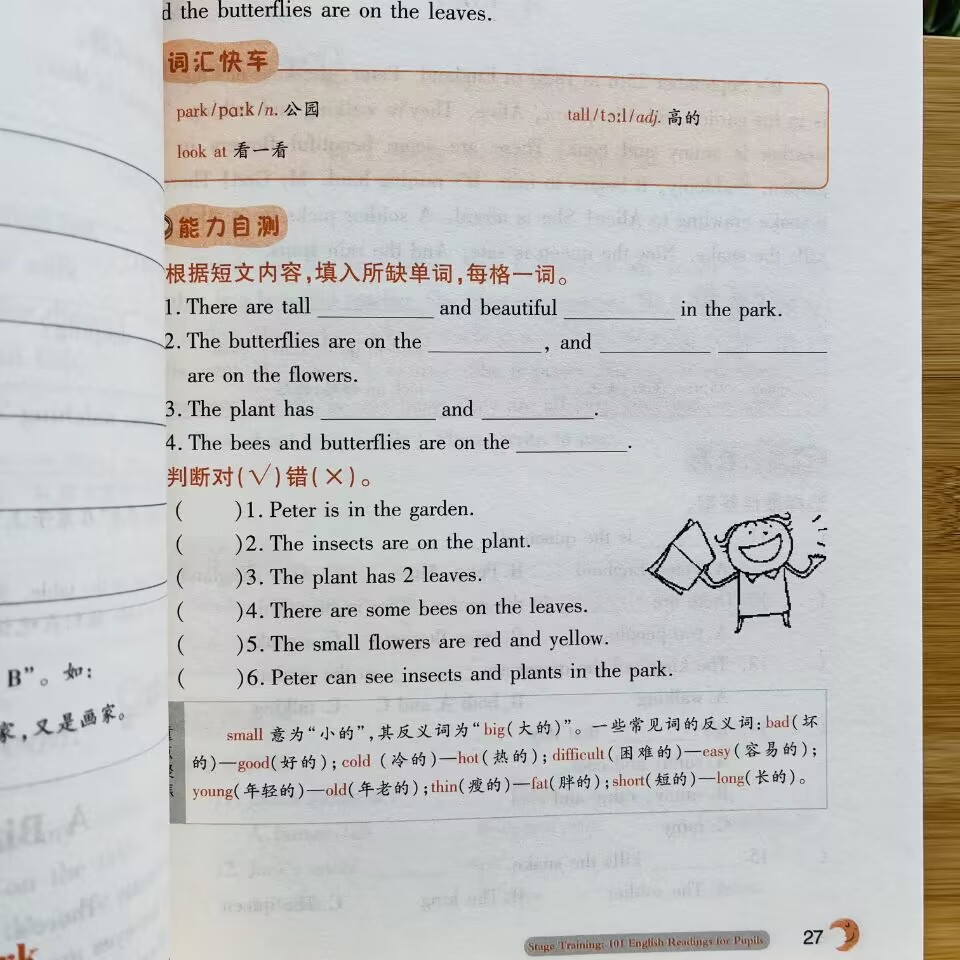 d the butterflies are on the leaves.
词汇快车
park/pɑːk/n. 公园 tall/tɔːl/adj. 高的
look at 看一看
能力自测
根据短文内容,填入所缺单词,每格一词。
1. There are tall __________ and beautiful __________ in the park.
2. The butterflies are on the __________, and __________ __________
are on the flowers.
3. The plant has __________ and __________.
4. The bees and butterflies are on the __________.
判断对(√)错(×)。
( )1. Peter is in the garden.
( )2. The insects are on the plant.
( )3. The plant has 2 leaves.
( )4. There are some bees on the leaves.
( )5. The small flowers are red and yellow.
( )6. Peter can see insects and plants in the park.
small 意为“小的”,其反义词为“big(大的)”。一些常见词的反义词:bad(坏
的)—good(好的);cold (冷的)—hot(热的);difficult(困难的)—easy(容易的);
young(年轻的)—old(年老的);thin(瘦的)—fat(胖的);short(短的)—long(长的)。
B”。如:
家,又是画家。
Stage Training: 101 English Readings for Pupils 27